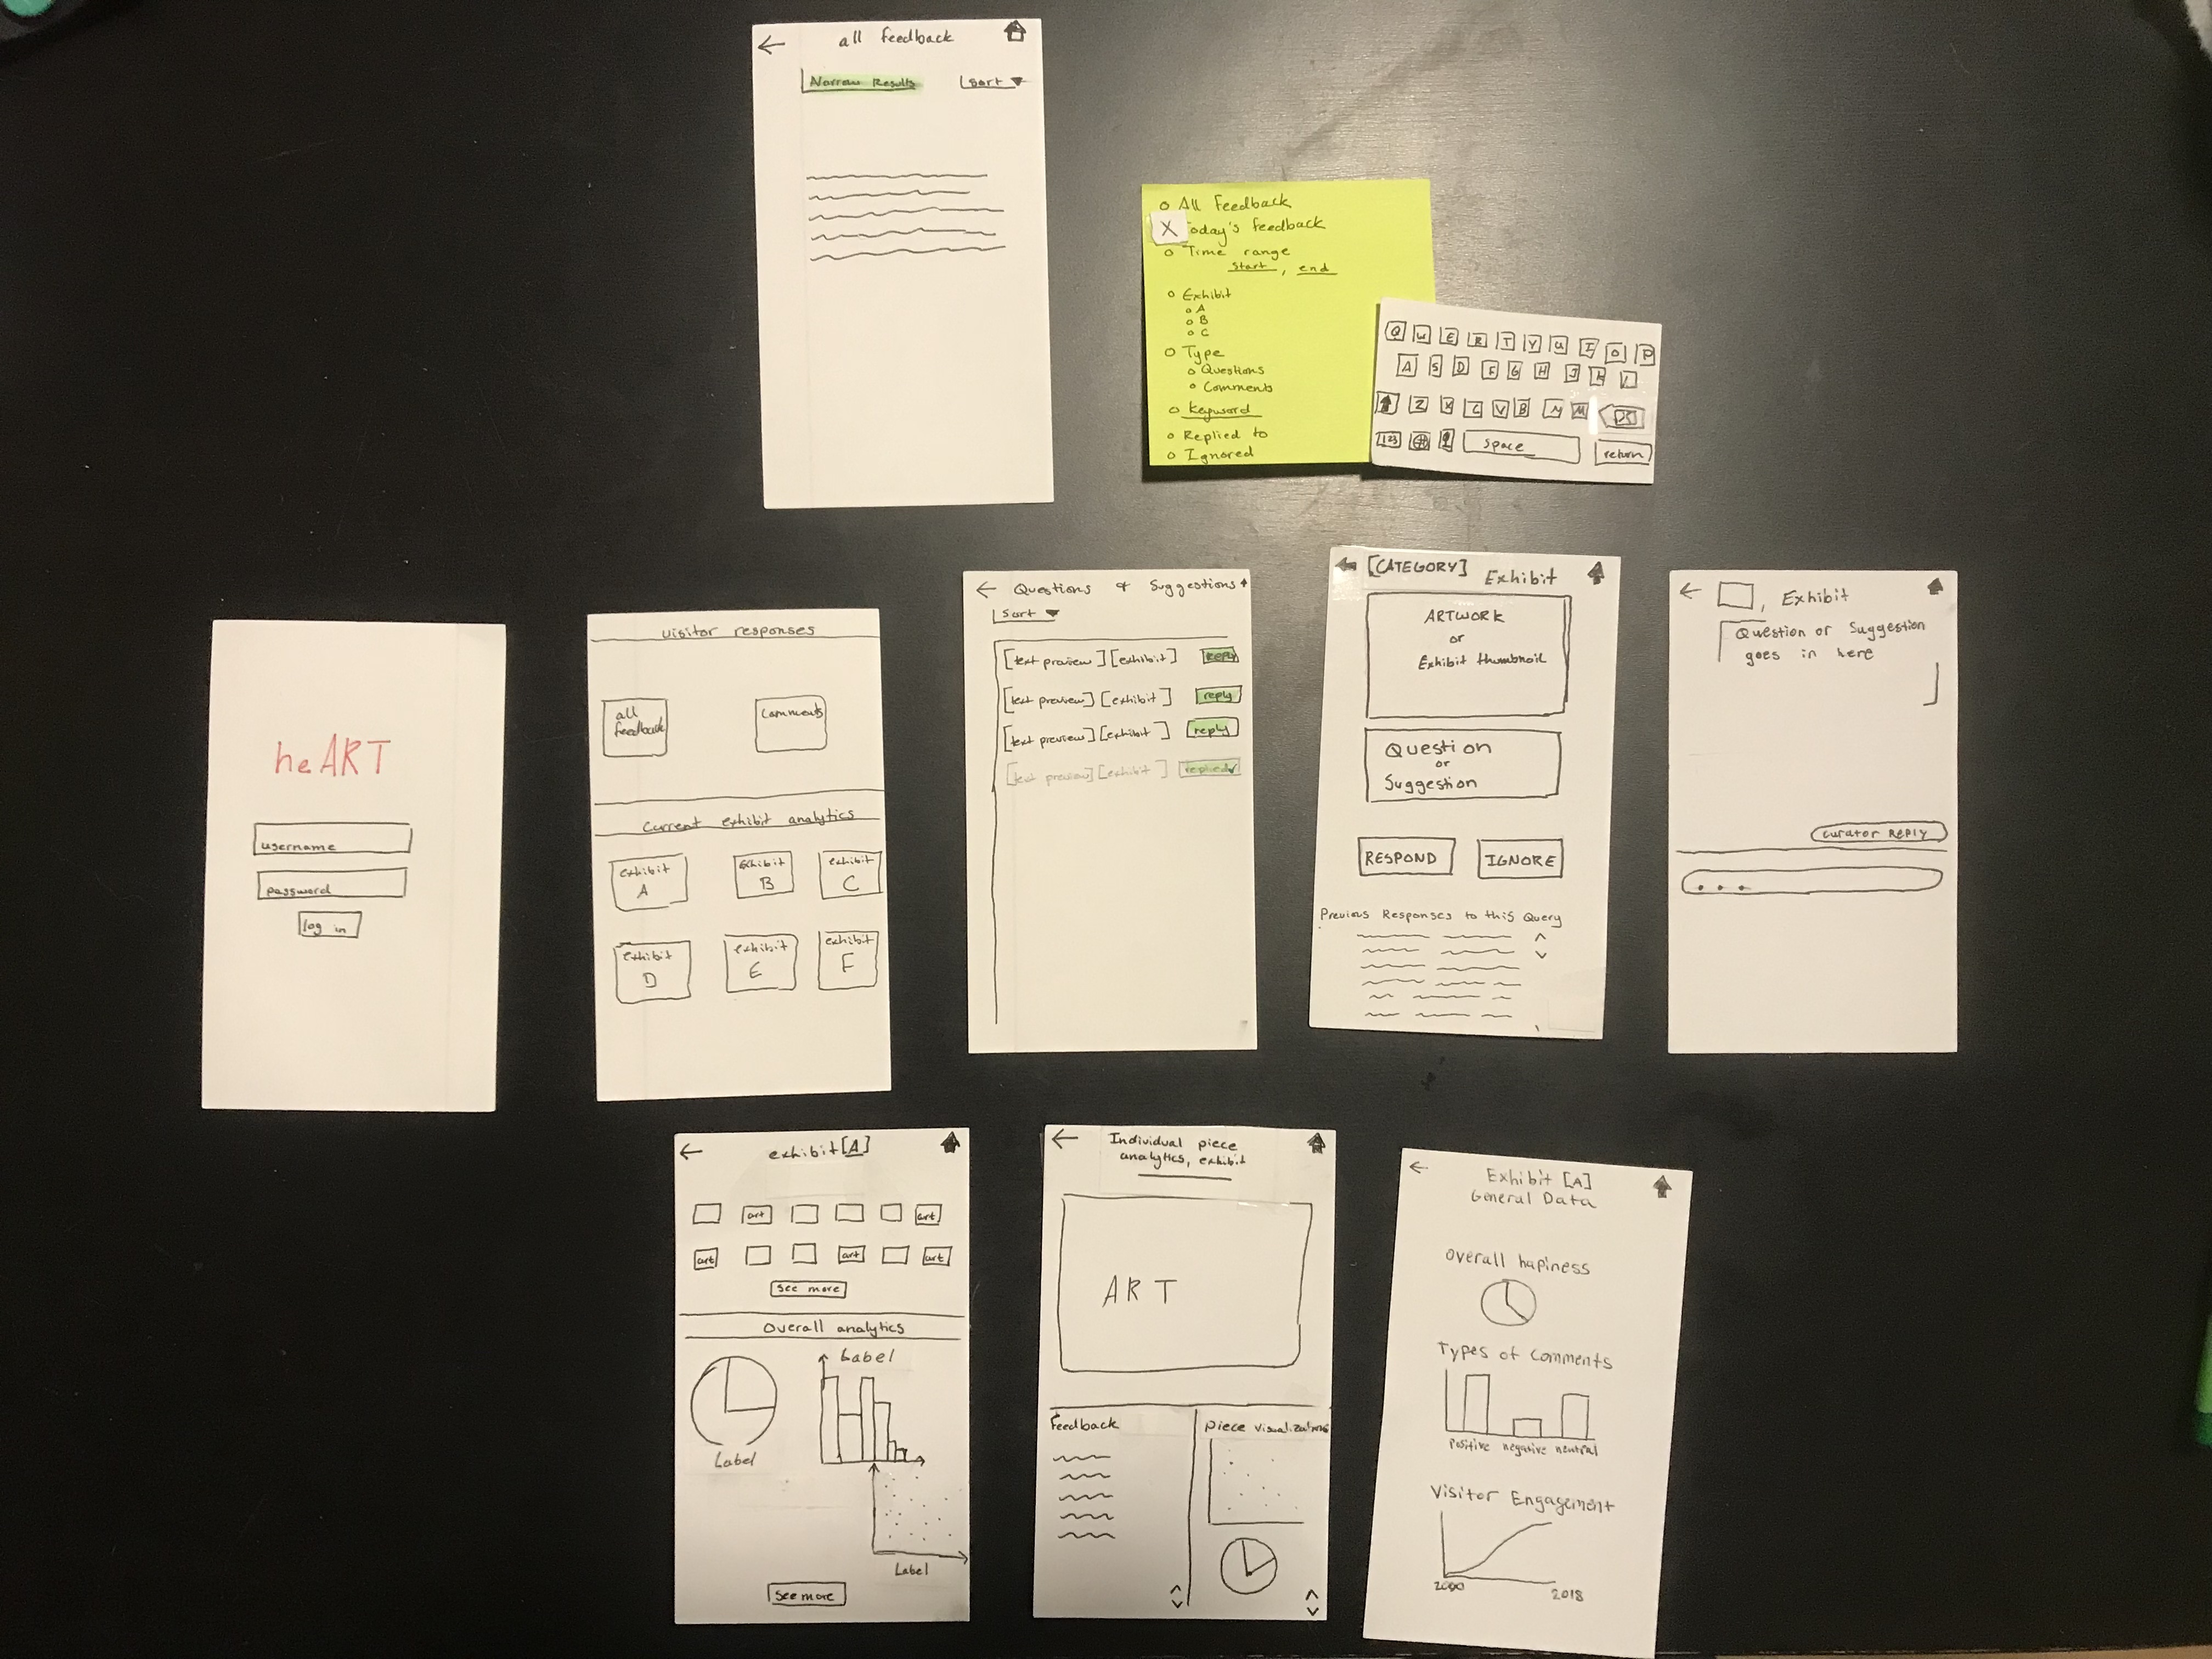 all feedback
Narrow Results
Sort
All Feedback
X Today's feedback
Time range
start, end
Exhibit
A
B
C
Type
Questions
Comments
Keyword
Replied to
Ignored
Q W E R T Y U I O P
A S D F G H J K L
Z X C V B N M
123
space
return
heART
username
password
log in
visitor responses
all feedback
comments
Current exhibit analytics
exhibit A
Exhibit B
exhibit C
exhibit D
exhibit E
exhibit F
Questions & Suggestions
Sort
[text preview] [exhibit] reply
[text preview] [exhibit] reply
[text preview] [exhibit] reply
[text preview] [exhibit] replied
[CATEGORY] Exhibit
ARTWORK
or
Exhibit thumbnail
Question
or
Suggestion
RESPOND
IGNORE
Previous Responses to this Query
, Exhibit
Question or Suggestion
goes in here
curator REPLY
...
exhibit [A]
art art
art art art
see more
Overall analytics
Label
Label
Label
see more
Individual piece
analytics, exhibit
ART
Feedback
piece visualizations
Exhibit [A]
General Data
Overall hapiness
Types of Comments
positive negative neutral
Visitor Engagement
2000
2018